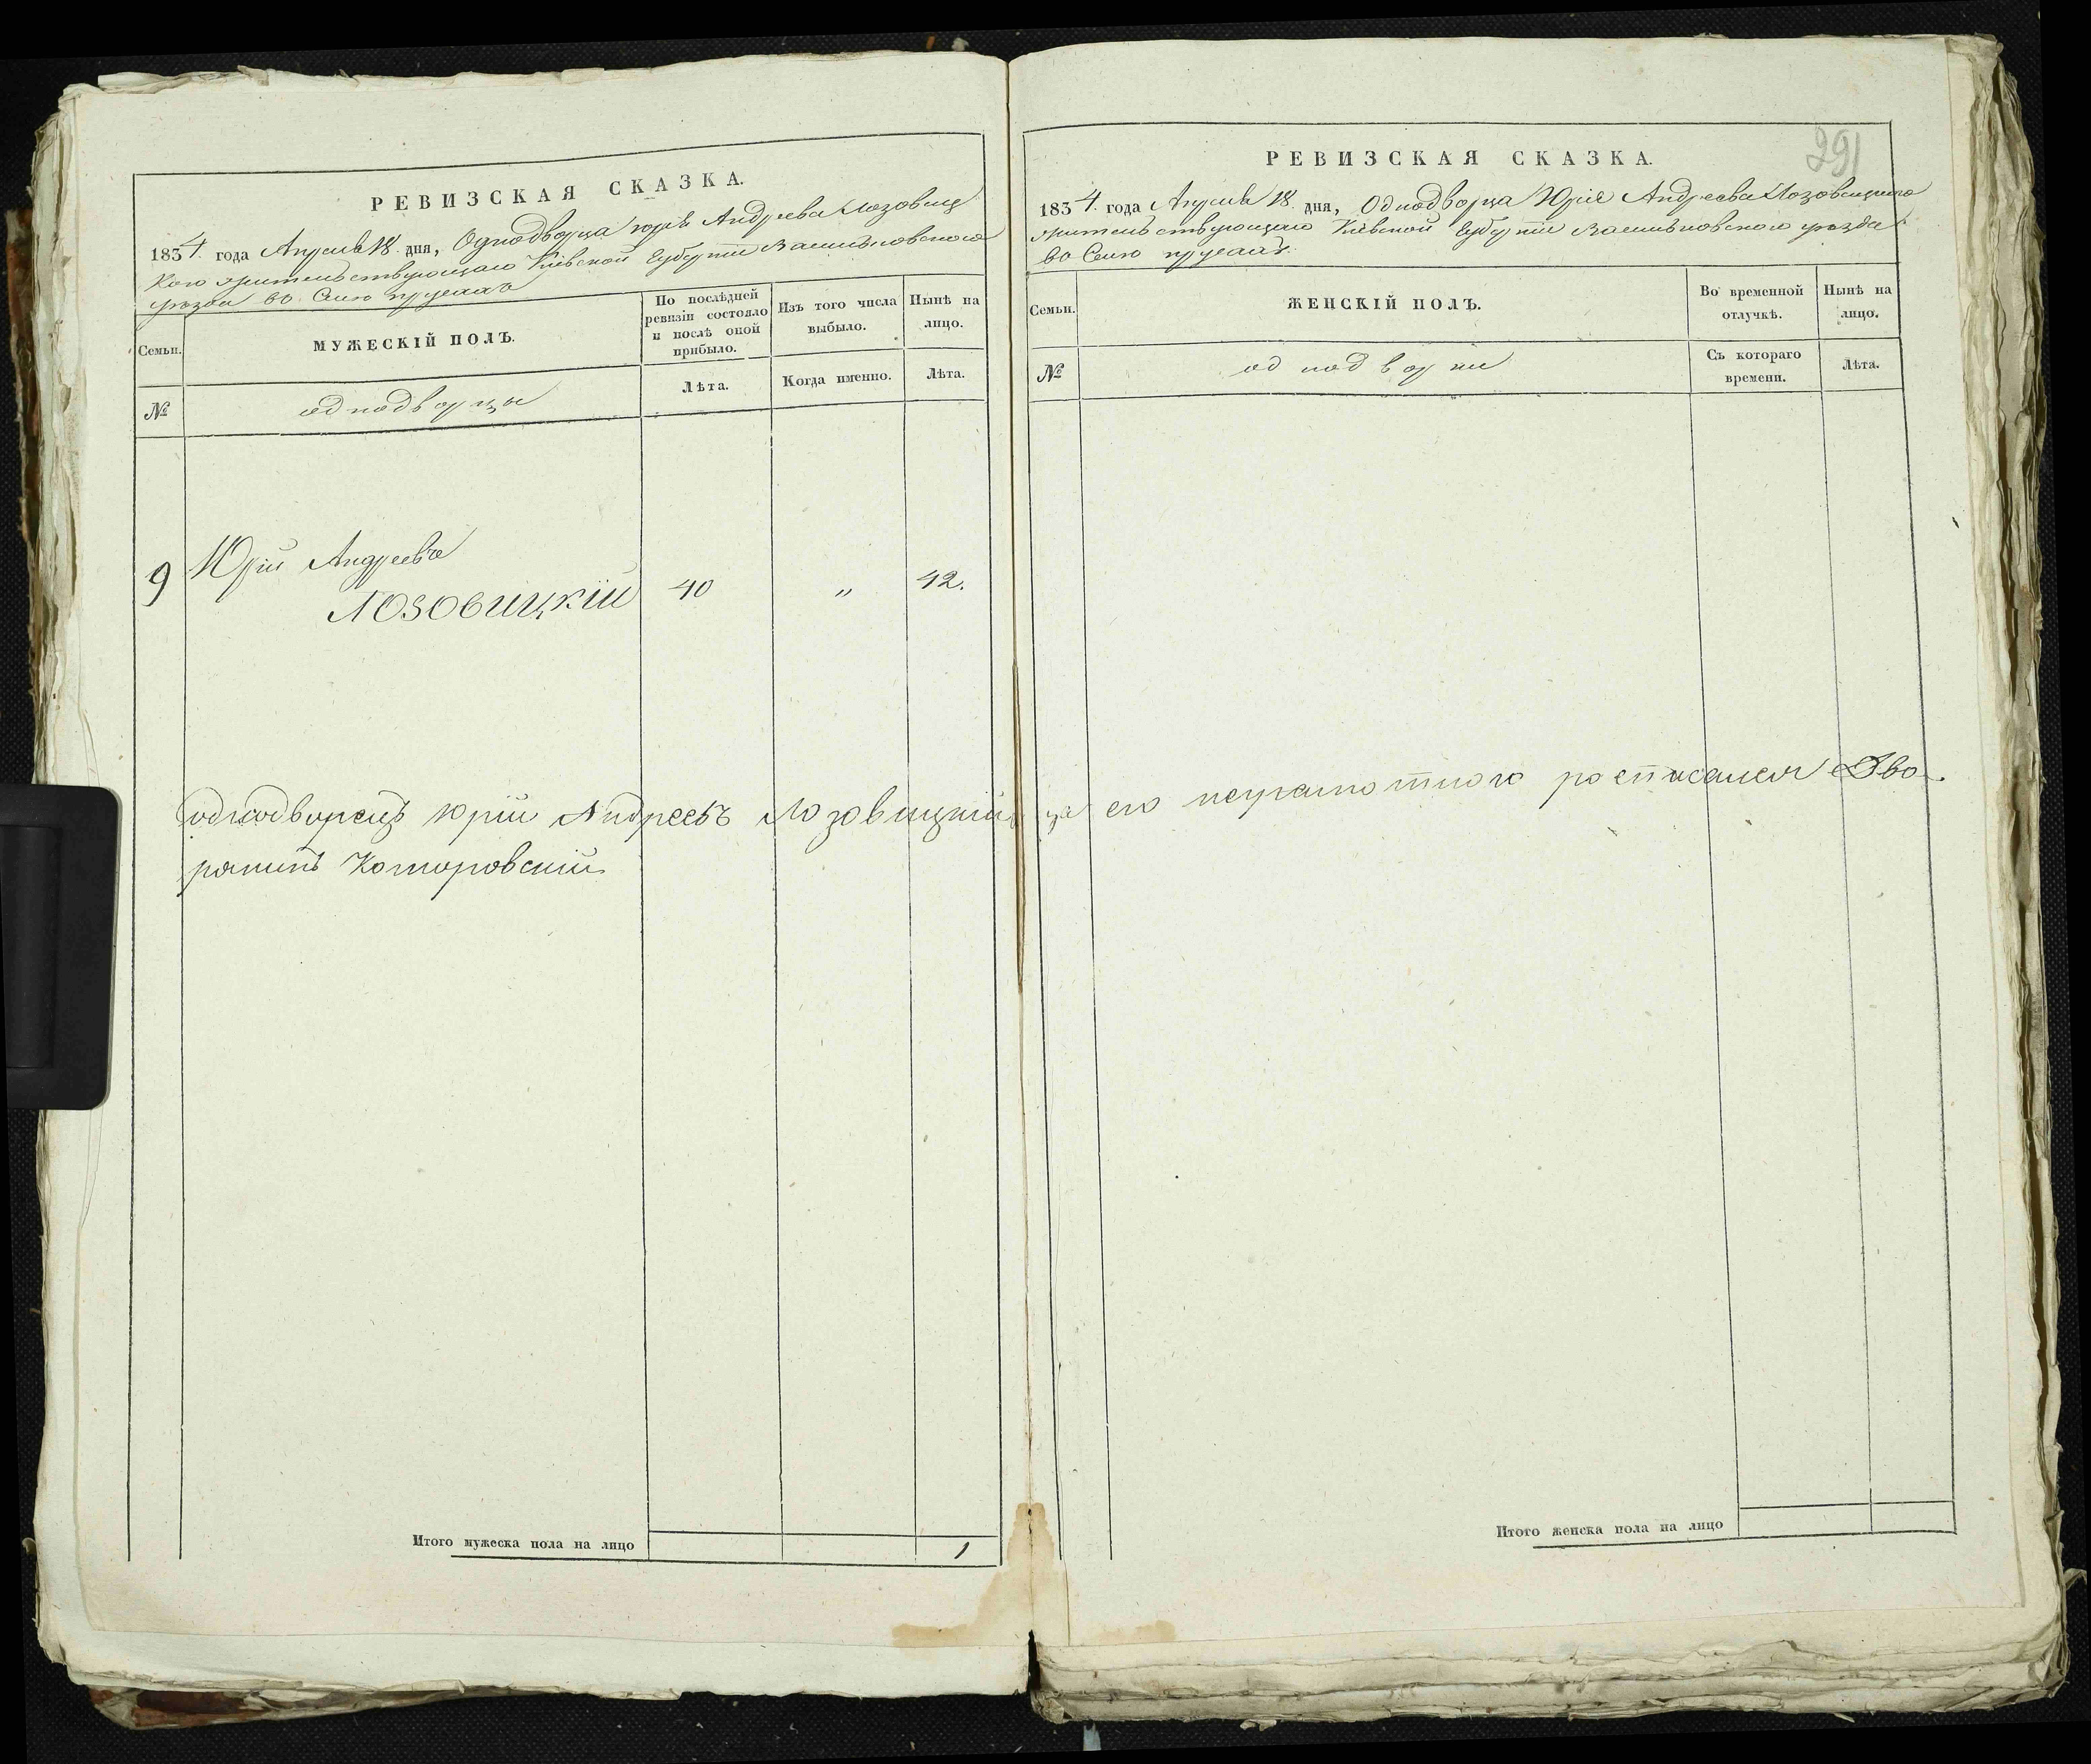 РЕВИЗСКАЯ СКАЗКА.
1834. года Апреля 18. дня, Однодворца Юрія Андреева Лозовиц
кого жительствующаго Кіевской Губерніи Васильковского
уезда во Селе
Семьи.
МУЖЕСКІЙ ПОЛЪ.
По послѣдней ревизіи состояло и послѣ оной прибыло.
Изъ того числа выбыло.
Нынѣ на лицо.
№
однодворцы
Лѣта.
Когда именно.
Лѣта.
9
Юрій Андреевъ
Лозовицкій
40
〃
42.
однодворецъ Юрій Андреевъ Лозовицкій, а за его неграмотного росписался Дво-
рянинъ Коморовскій
Итого мужеска пола на лицо
1
291
РЕВИЗСКАЯ СКАЗКА.
1834. года Апреля 18. дня, Однодворца Юрія Андреева Лозовицкого
жительствующаго Кіевской Губерніи Васильковского уезда
во Селе
Семьи.
ЖЕНСКІЙ ПОЛЪ.
Во временной отлучкѣ.
Нынѣ на лицо.
№
однодворки
Съ котораго времени.
Лѣта.
Итого женска пола на лицо